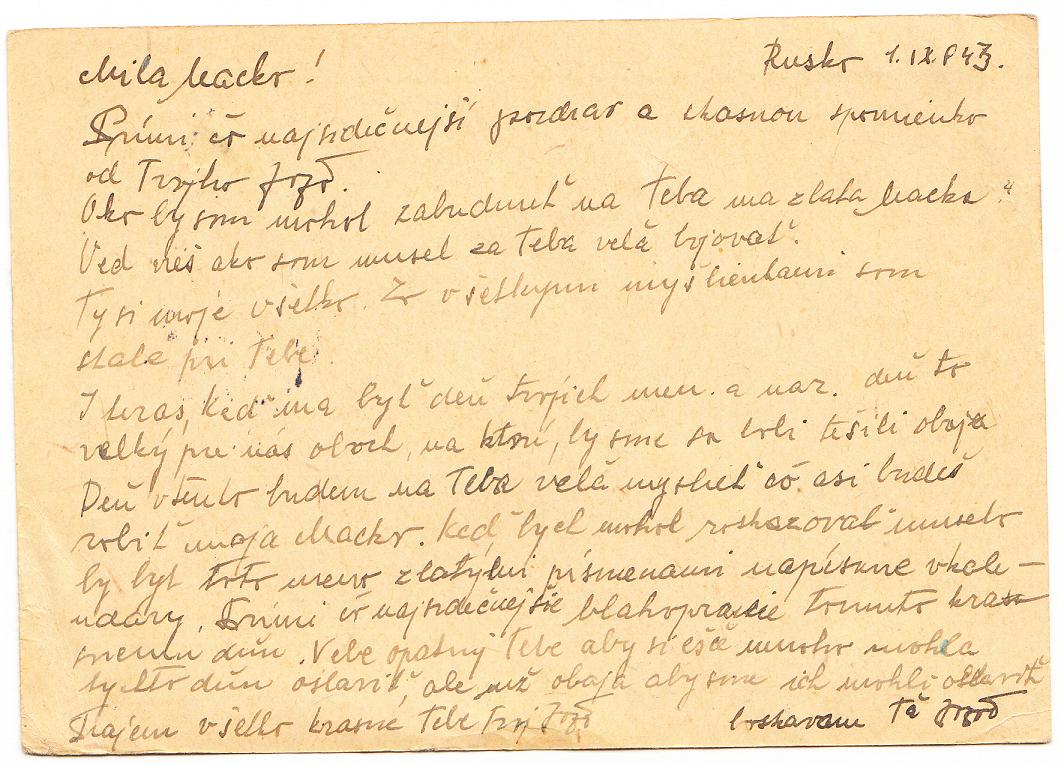 Mila Macko!
Rusko 1.IX.943.
Prími čo najsrdečnejší pozdrav a krasnou spomienko
od Tvojho Jozo.
Ako by som mohol zabudnuť na Teba ma zlata Macko?
Veď vieš ako som musel za Teba velă bojovať.
Ty si moje všetko. Zo všetkymi myšlienkami som
stale pri Tebe.
I teras, keď ma byť deň tvojich men. a nar. deň to
velký pre nás oboch, na ktorí, by sme sa boli tešili oboja
Deň v tento budem na Teba velă mysleť čo asi budeš
robiť moja Macko. Keď bych mohol roskazovať muselo
by byť toto meno zlatými písmenami napísane v kale-
ndáry. Prími čo najsrdečnejšie blahopranie tomuto kras
snemu dňu. Tebe aby si ešče mnoho mohla
tychto dňu oslaviť, ale už obaja aby sme ich mohli oslaviť
Prajem všetko krasné Tebe tvoj Jozo
boskavam Tă Jozo